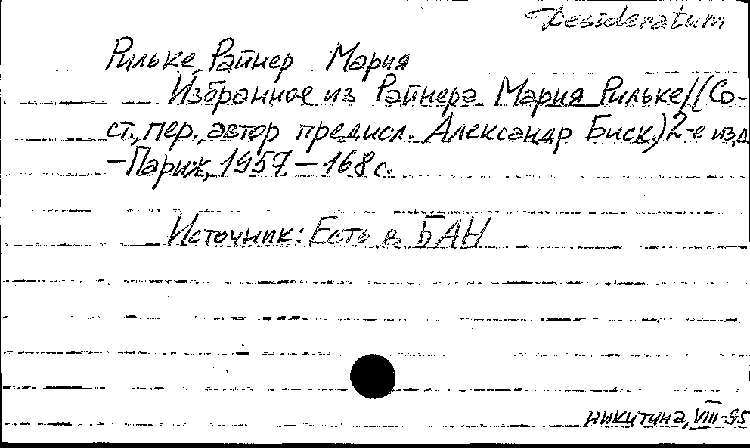 Desideratum
Рильке, Райнер Мария
Избранное из Райнера Мария Рильке/(Со-
ст., пер., автор предисл. Александр Биск.) 2-е изд.
-Париж, 1957. - 168 с.
Источник: Есть в БАН
никитина, VIII-95